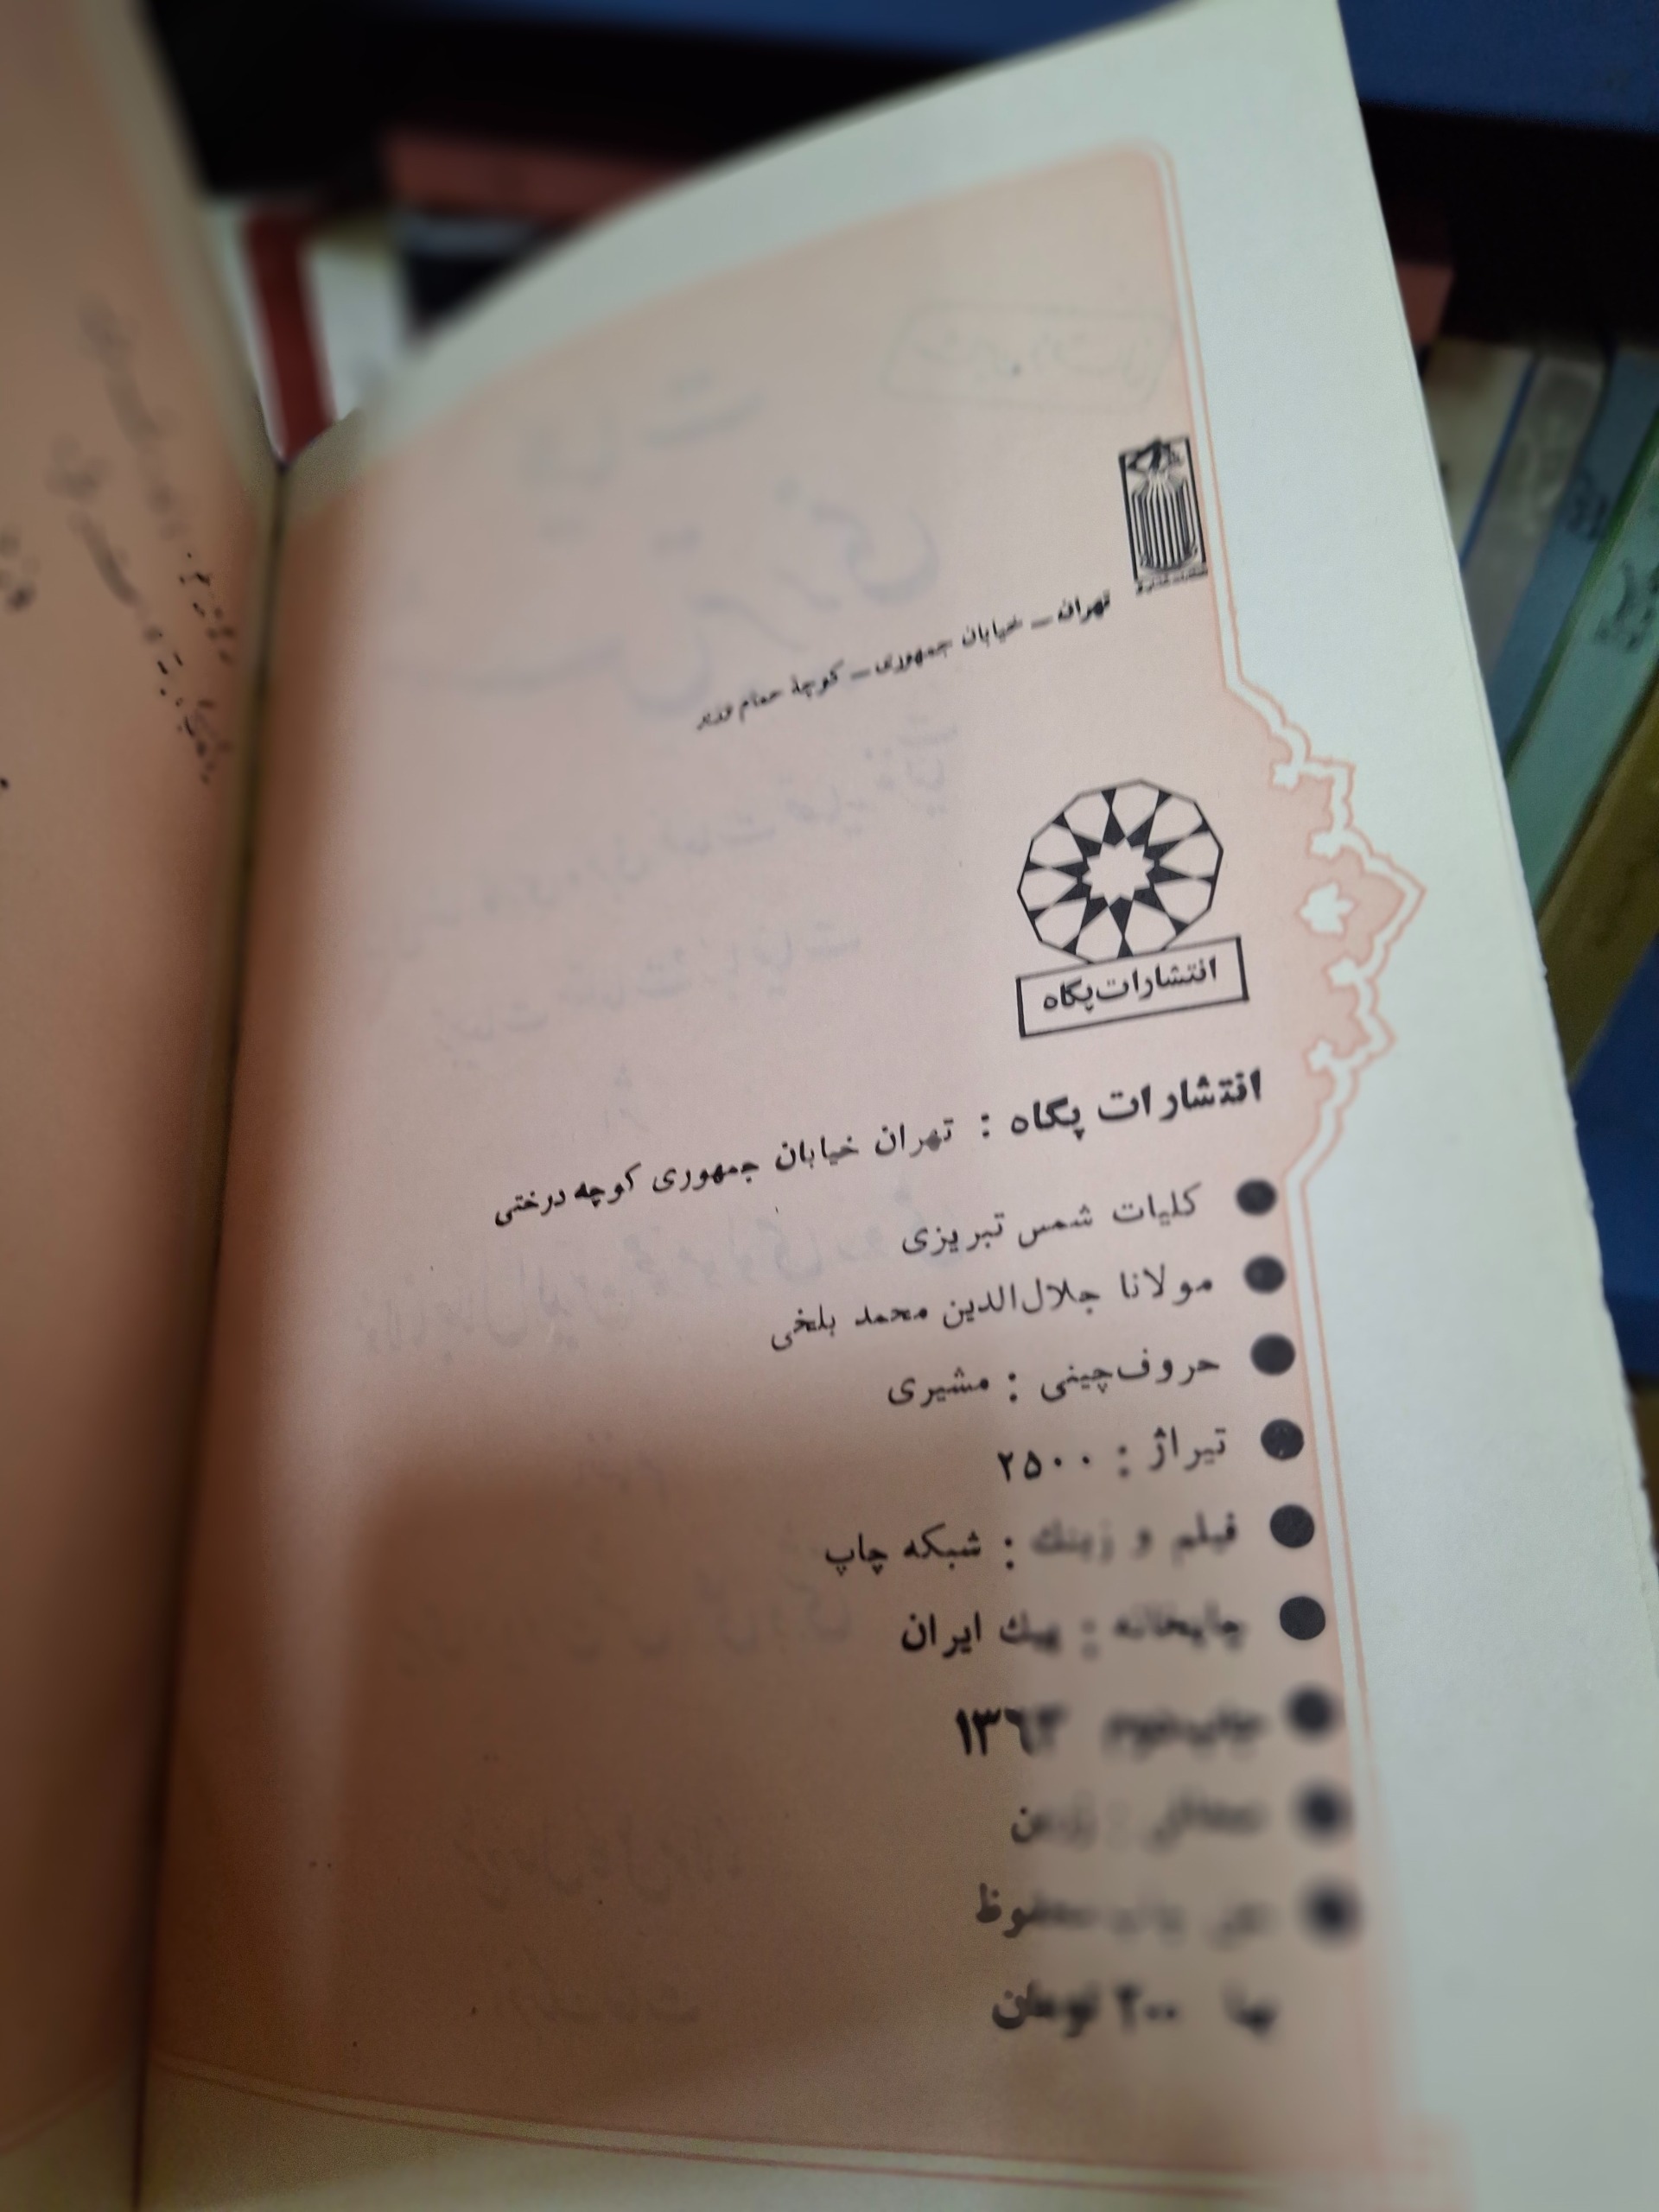 تهران ـ خیابان جمهوری ـ کوچهٔ حمام وزیر
انتشارات پگاه
انتشارات پگاه : تهران خیابان جمهوری کوچه درختی
● کلیات شمس تبریزی
● مولانا جلال‌الدین محمد بلخی
● حروف‌چینی : مشیری
● تیراژ : ۲۵۰۰
● فیلم و زینك : شبکه چاپ
● چاپخانه : پیك ایران
● ۱۳۶۳
● صحافی : زرین
● محفوظ
بها ۲۰۰ تومان